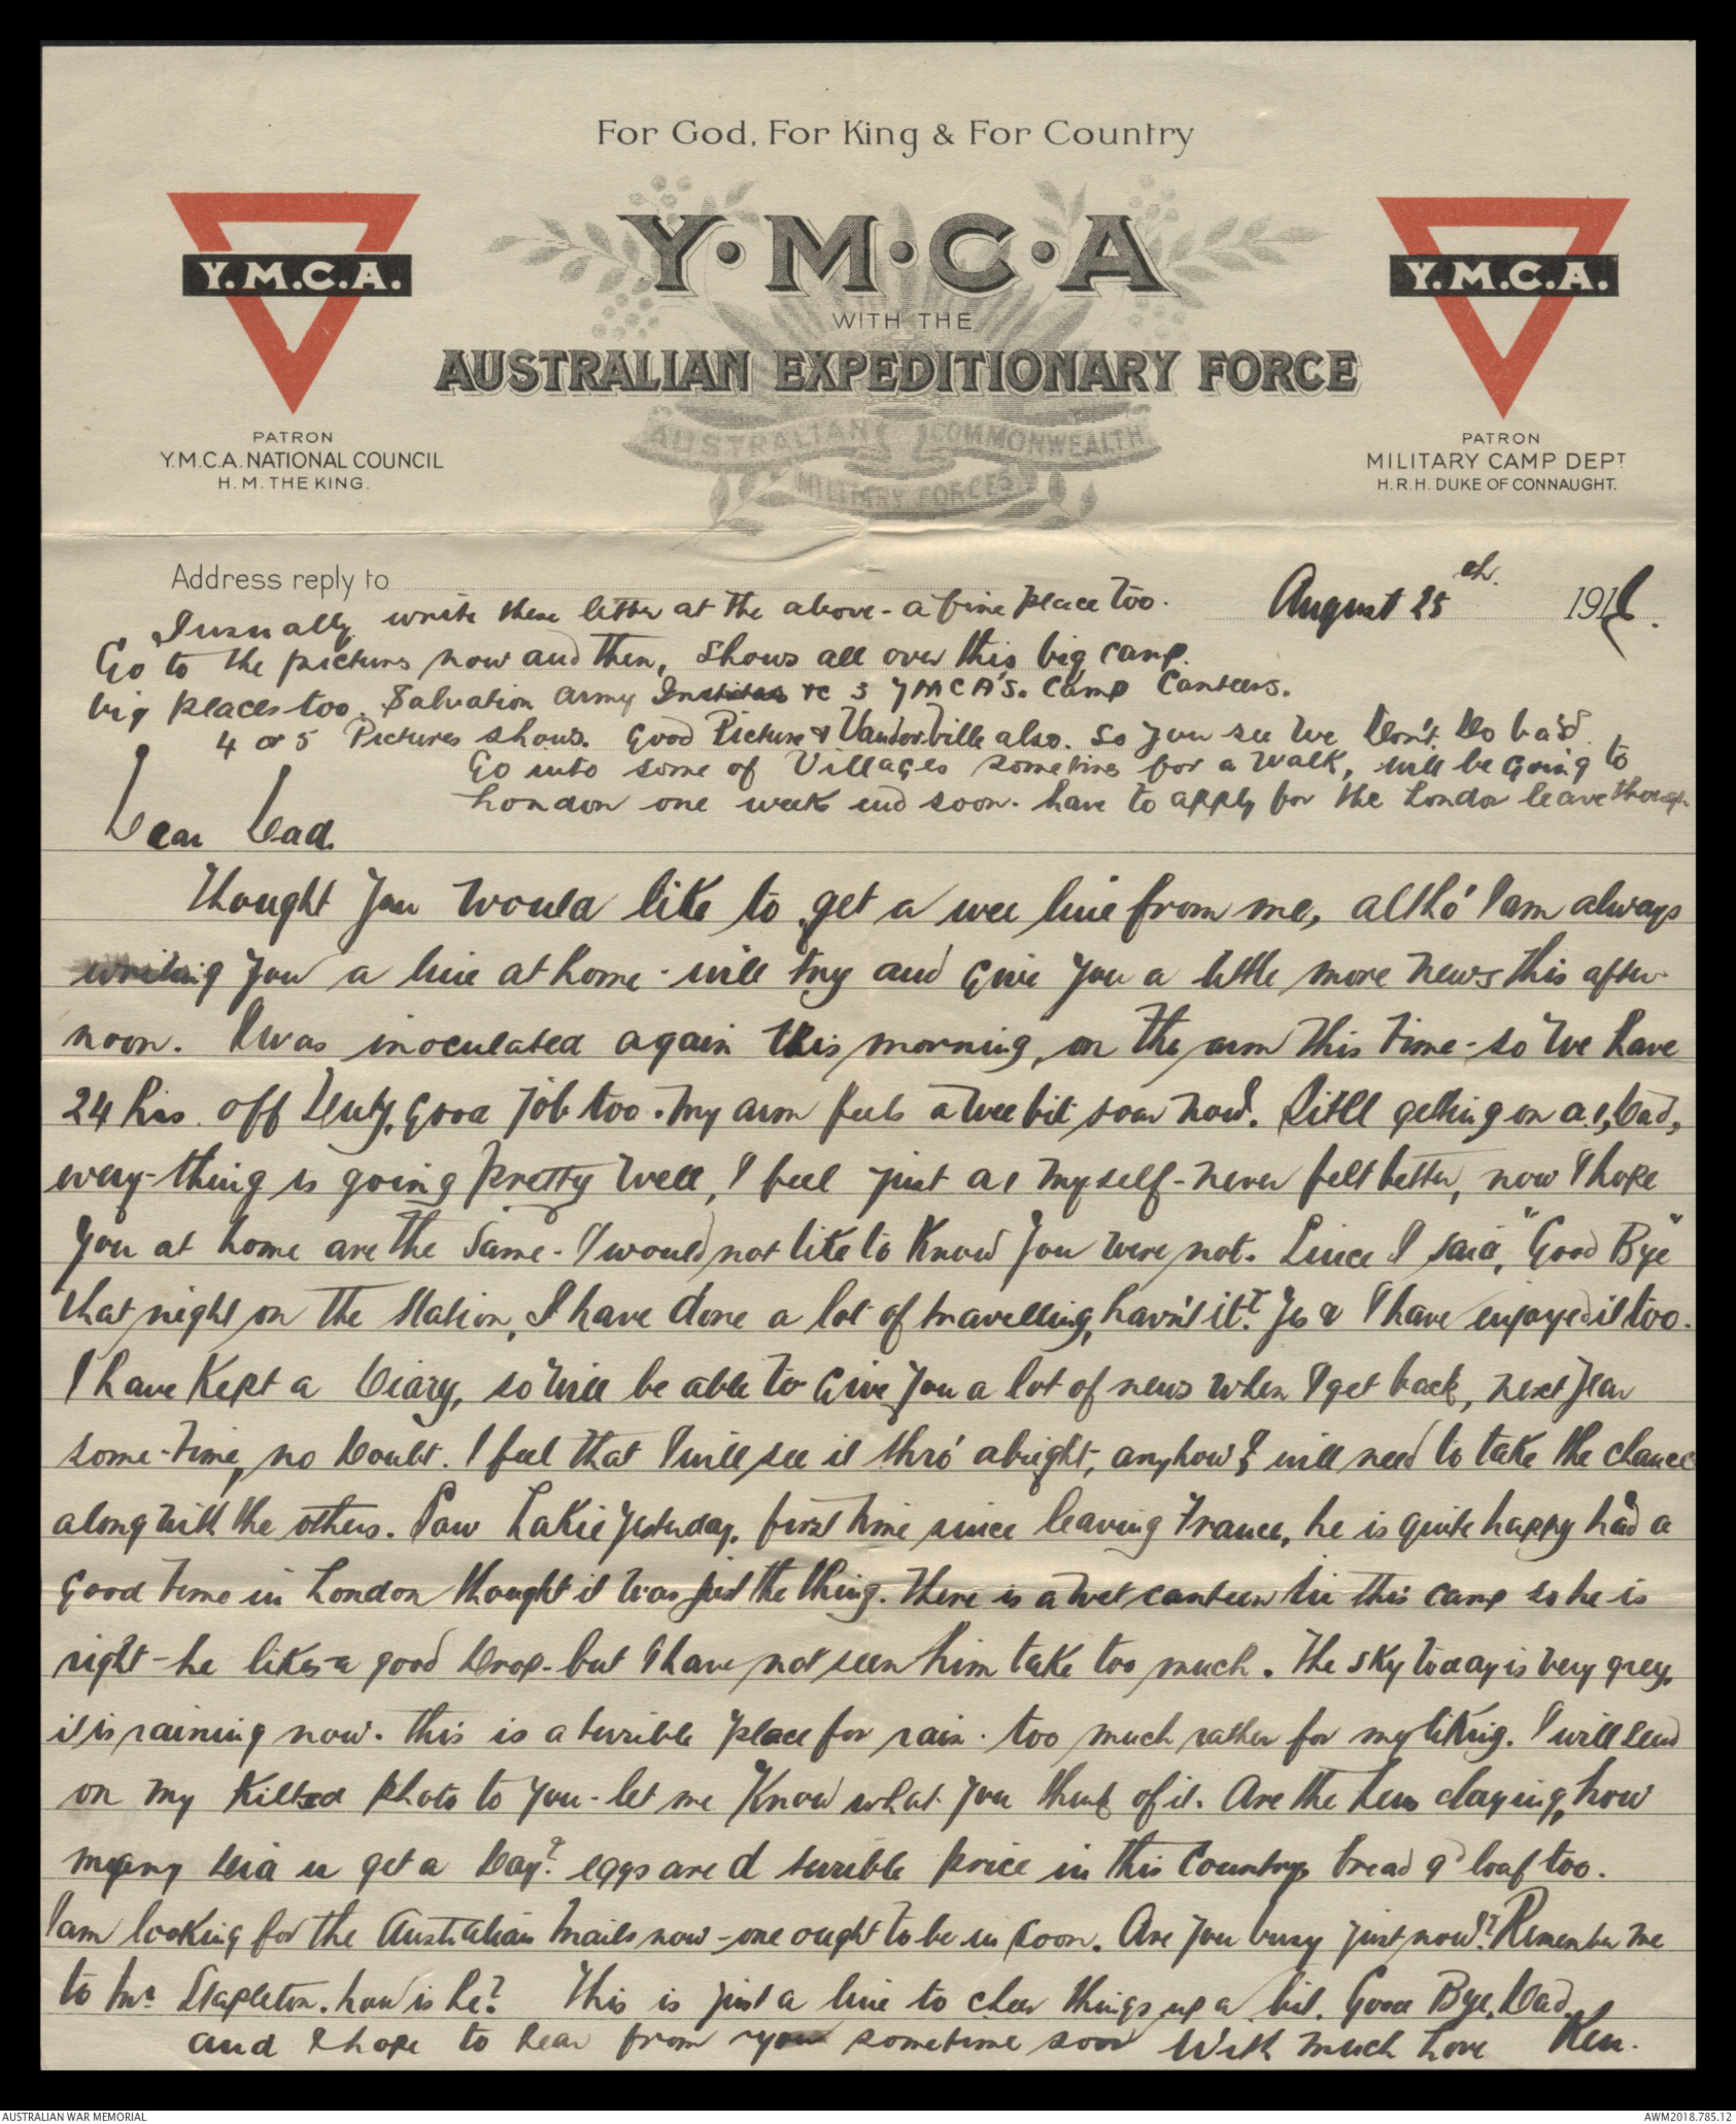 For God, For King & For Country
Y.M.C.A.
Y·M·C·A
Y.M.C.A.
WITH THE
AUSTRALIAN EXPEDITIONARY FORCE
AUSTRALIAN COMMONWEALTH
MILITARY FORCES
PATRON
Y.M.C.A. NATIONAL COUNCIL
H.M. THE KING.
PATRON
MILITARY CAMP DEPT
H.R.H. DUKE OF CONNAUGHT.
Address reply to
August 25th. 191
I usually write these letter at the above - a fine place too.
Go to the pictures now and then, shows all over this big camp.
big places too. Salvation Army 3 YMCA'S. Camp Canteens.
4 or 5 Pictures shows. Good Picture & Vaudorville also. So you see we don't do bad.
Go into some of Villages sometimes for a walk, will be going to
London one week end soon. have to apply for the London leave though
Dear Dad.
Thought you would like to get a wee line from me, altho' I am always
writing you a line at home - will try and give you a little more news this after-
noon. I was inoculated again this morning, on the arm this time - so we have
24 hrs. off duty, good job too. My arm feels a wee bit soar now. Still getting on a1, Dad,
every-thing is going pretty well, I feel just a1 myself - never felt better, now I hope
you at home are the same - I would not like to know you were not. Since I said, "Good Bye"
that night on the Station, I have done a lot of travelling, havn't it? Yes & I have enjoyed it too.
I have kept a Diary, so will be able to give you a lot of news when I get back, next year
some-time, no doubt. I feel that I will see it thro' alright, anyhow I will need to take the chance
along with the others. Saw Lakie yesterday, first time since leaving France, he is quite happy had a
good time in London thought it was just the thing. There is a wet canteen in this camp so he is
right - he likes a good drop - but I have not seen him take too much. The sky today is very grey,
it is raining now. this is a terrible place for rain. too much rather for my liking. I will send
on my kilted photo to you - let me know what you think of it. Are the hens laying, how
many did u get a day? eggs are d terrible price in this Country, bread 9d loaf too.
I am looking for the Australian mails now - one ought to be in soon. Are you busy just now? Remember me
to Mr Stapleton. how is he? This is just a line to cheer things up a bit. Good Bye, Dad,
and I hope to hear from you sometime soon With much Love Ken.
AUSTRALIAN WAR MEMORIAL
AWM2018.785.12